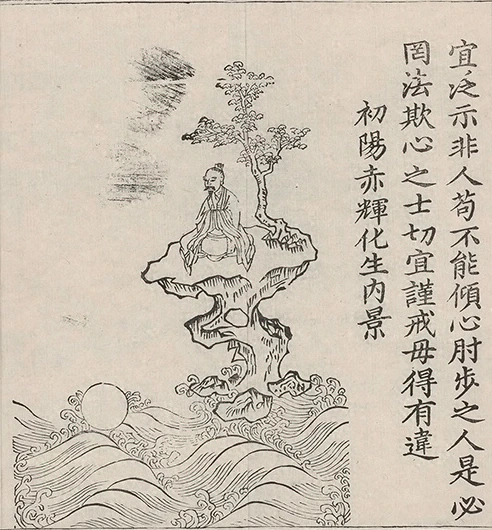 宜泛示非人苟不能傾心肘步之人是必
罔法欺心之士切宜謹戒毋得有違
初陽赤輝化生內景